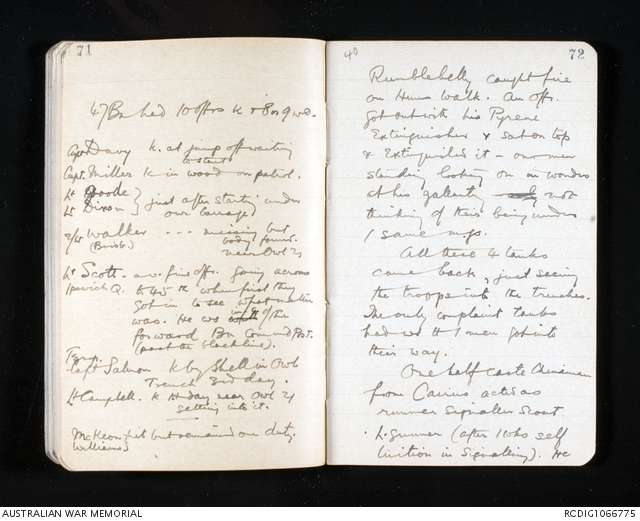 71
47 Bn had 10 offrs k & 8 or 9 wd.
Capt Davy k. at jump off waiting
to start
Capt. Millis K in wood on patrol.
Lt Goode
Lt Dixon } just after starting under
our barrage)
2/Lt Walker ... missing but
(Brisb.) body found.
near Owl
Lt Scott. a.w. fire offr. going across
Ipswich Q. to 45th when first they
got in to see what matter
was. He was in of the
forward Bn Command Post.
(past the blackline).
Temp.
Capt Salmon k by shell in Owl
Trench 3rd day.
Lt Campbell. K 1st day near Owl
getting into it.
McKeon hit but remained on duty.
Williams}
40
72
Rumblebelly caught fire
on Huns Walk. An offr.
got out with his Pyrene
Extinguisher & sat on top
& Extinguished it — our men
standing looking on in wonder
at his gallantry not
thinking of their being under
/ same m.gs.
All these 4 tanks
came back, just seeing
the troops into the trenches.
The only complaint tanks
had was tt / men got into
their way.
One half caste Chinaman
from Cairns, acted as
runner signaller scout
L. gunner (after 1 wks self
tuition in signalling). He
AUSTRALIAN WAR MEMORIAL
RCDIG1066775